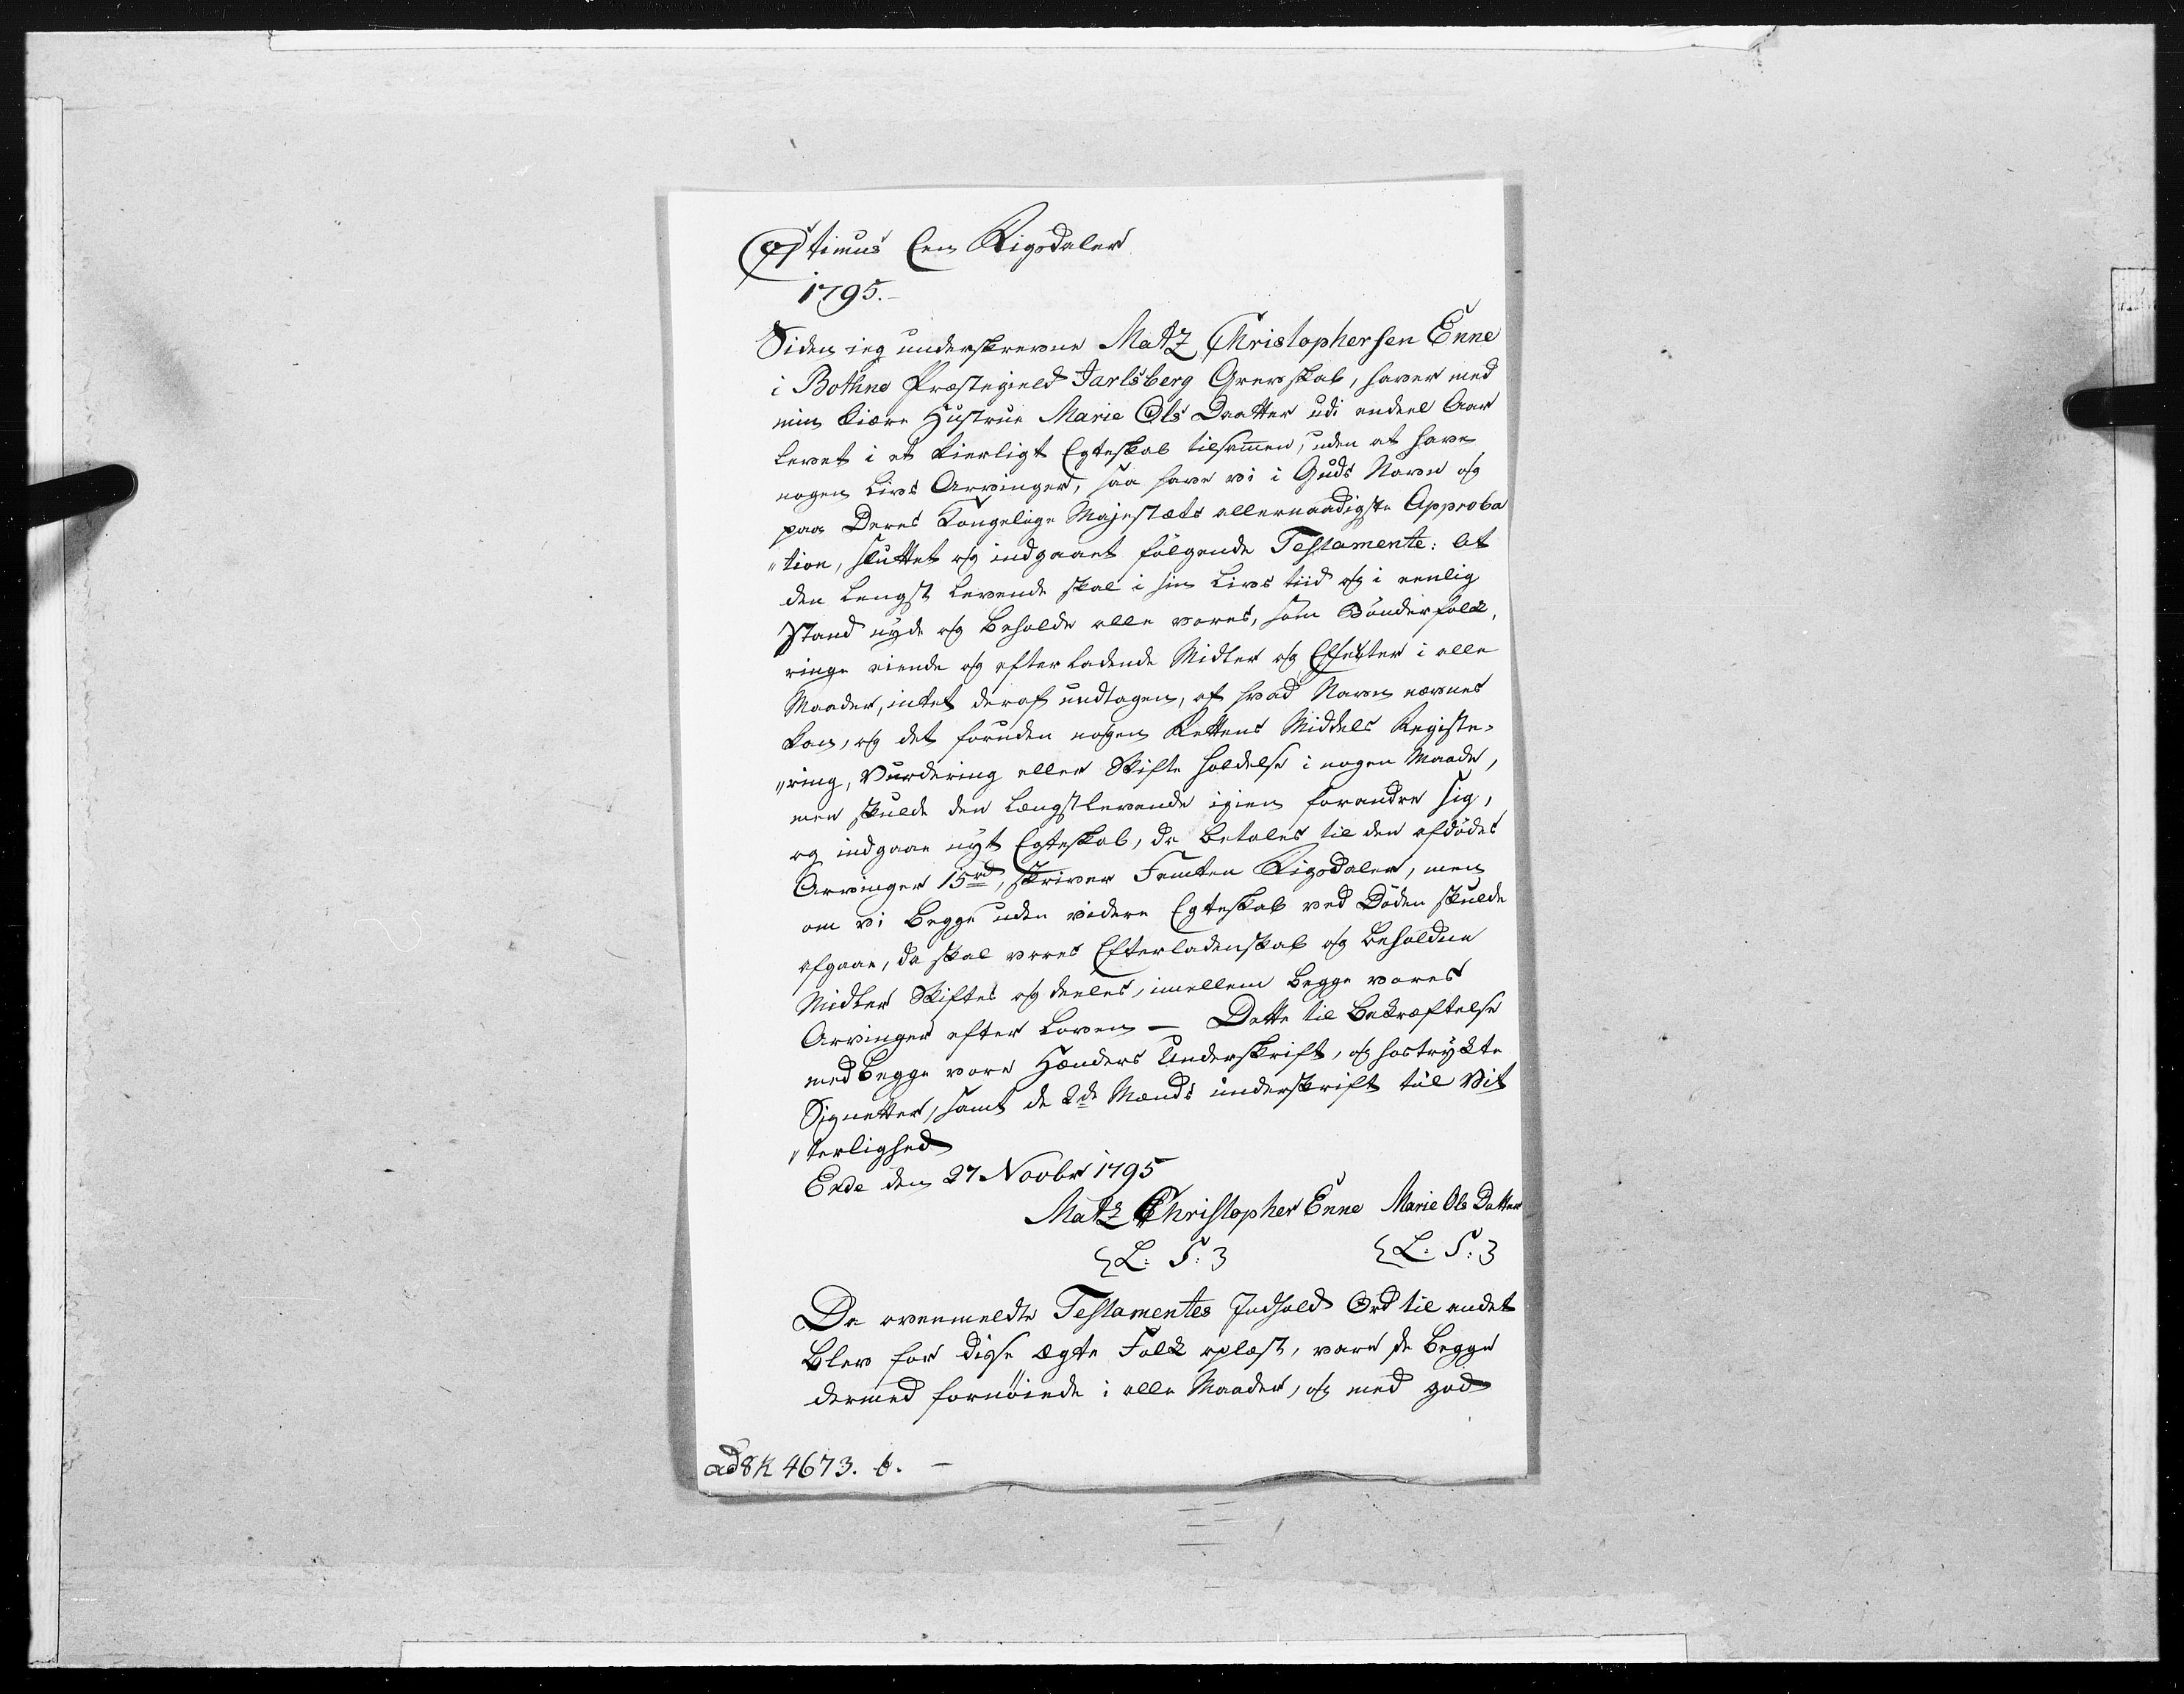 Optimus Een Rigsdaler
1795.
Siden ieg underskrevne Matz Christophersen Enne
i Bothne Præstegield Jarlsberg Grevskab, haver med
min kiære Hustrue Marie Ols Daatter udi endeel Aar
levet i et kierligt Egteskab tilsammen, uden at have
nogen Livs Arvinger, saa have vi i Guds Navn og
paa Deres Kongelige Majestæts allernaadigste Approba
"tion, sluttet og indgaaet følgende Testamente: At
den Lengst Levende skal i sin Livs tiid og i eenlig
Stand nyde og beholde alle vores, som Bønderfolk,
ringe eiende og efterladende Midler og Effecter i alle
Maader, intet deraf undtagen, af hvad Navn nævnes
kan, og det foruden nogen Rettens Middels Registe-
"ring, Vurdering eller Skifte holdelse i nogen Maade,
men skulde den Længstlevende igien forandre sig,
og indgaae nyt Egteskab, da betales til den afdødes
Arvinger 15rd, skriver Femten Rigsdaler, men
om vi begge uden videre Egteskab ved Døden skulde
afgaae, da skal vores Efterladenskab og beholdne
Midler Skiftes og deeles, imellem begge vores
Arvinger efter Loven — Dette til Bekræftelse
med begge vore Hænders Underskrift, og hostrykte
Signetter, samt de 2de Mænds underskrift til Vit
"terlighed
Ende den 27 Novbr 1795
Matz Christopher Enne Marie Ols Datter
{L. S:} {L. S:}
Da ovenmeldte Testamentes Indhold Ord til andet
blev for disse Ægte Folk oplæst, vare de begge
dermed fornøiede i alle Maader, og med god
ad 8 K 4673. b. —